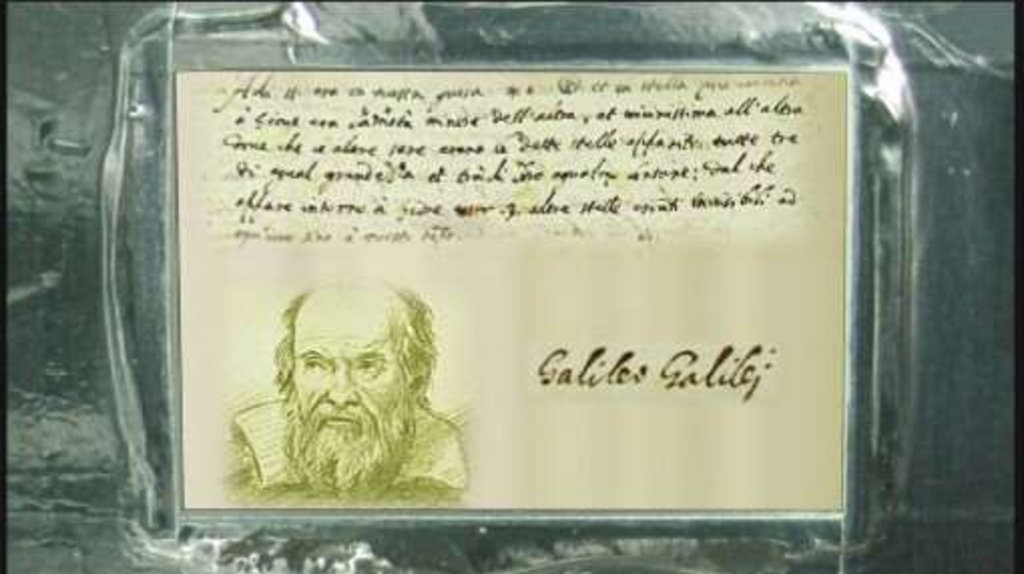 Adi 11 era in questa guisa * * et la stella più vicina
à Giove era la metà minore dell'altra, et vicinissima all'altra
dove che le altre sere erano le dette stelle apparite tutte tre
di egual grandezza et trà di loro equalmente lontane; dal che
appare intorno à Giove esser 3 altre stelle erranti invisibili ad
ogn'uno sino à questo
Galileo Galilej